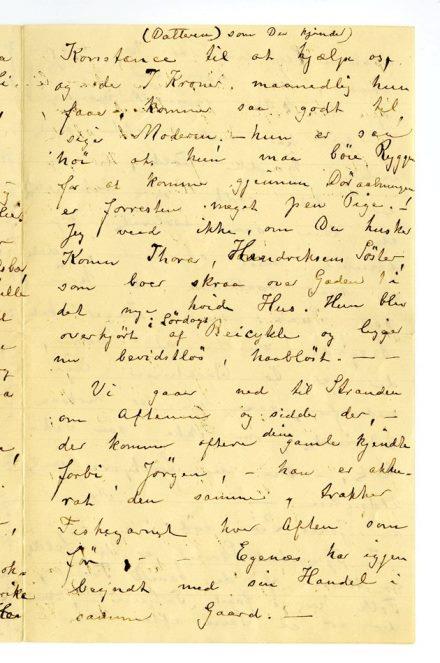 (Datteren) som Du kjender)
Konstance til at hjælpe os,
og 7 Kroner maanedlig hun
faar, kommer saa godt til,
siger Moderen. — hun er saa
höi at hun maa böie Ryggen
for at komme gjennem Döraabningen
er forresten meget pen Pige. —
Jeg veed ikke, om Du husker
Konen Thora, Hendriksens Söster,
som boer skraa over Gaden i
det nye hvide Hus. Hun blev
i Lördags
overkjört af Beicykle og ligger
nu bevidstlös, haablöst. — —
Vi gaar ned til Stranden
om Aftenen og sidder der, —
der kommer oftere dine gamle kjendte
forbi Jörgen, — han er akku-
rat den samme, trækker
Fiskegarnet hver Aften som
för, — — Egenæs har igjen
begyndt med sin Handel i
samme Gaard. —